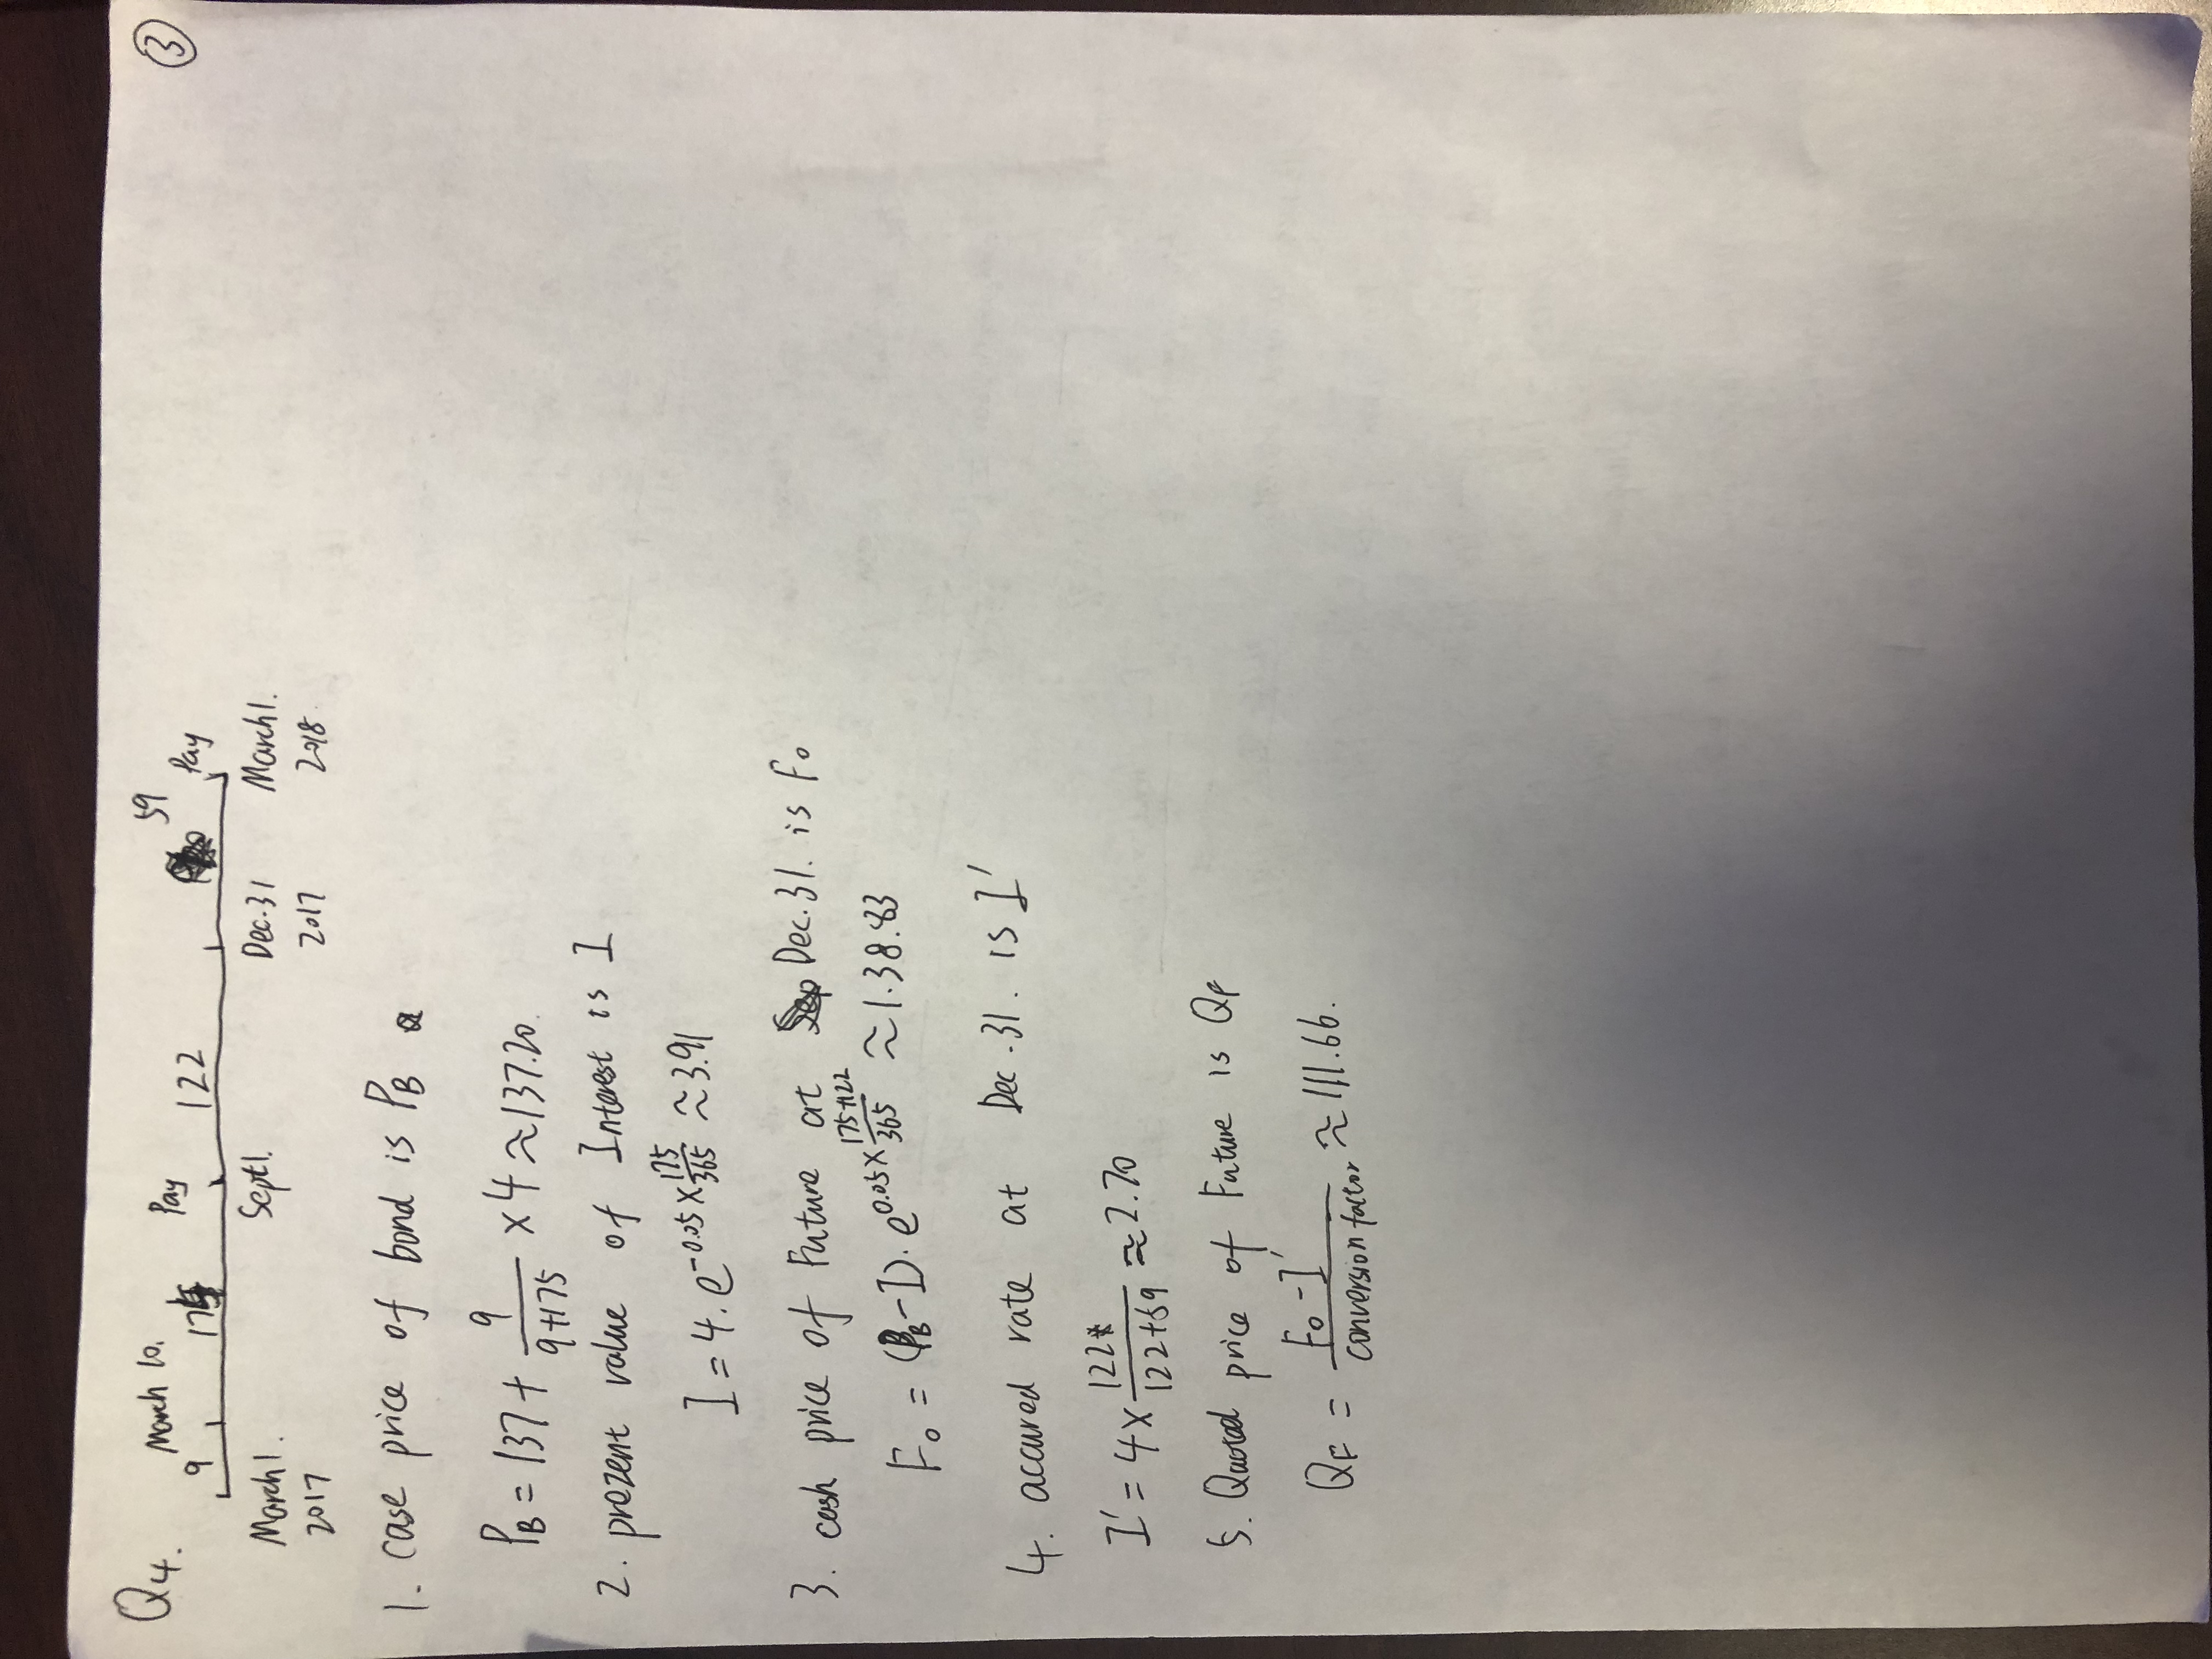 Q4.
March 10. Pay 59
9 175 122 Pay
March 1. Sept 1. Dec. 31 March 1.
2017 2017 2018.
③
1. case price of bond is P_B
P_B = 137 + 9/(9+175) × 4 ≈ 137.20.
2. prezent value of Interest is I
I = 4. e^(-0.05 × 175/365) ≈ 3.91
3. cash price of Future at Dec. 31. is F_0
F_0 = (P_B - I). e^(0.05 × (175+122)/365) ≈ 1.38.83
4. accured rate at Dec. 31. is I'
I' = 4 × 122/(122+59) ≈ 2.70
5. Quoted price of Future is Q_F
Q_F = (F_0 - I')/conversion factor ≈ 111.66.